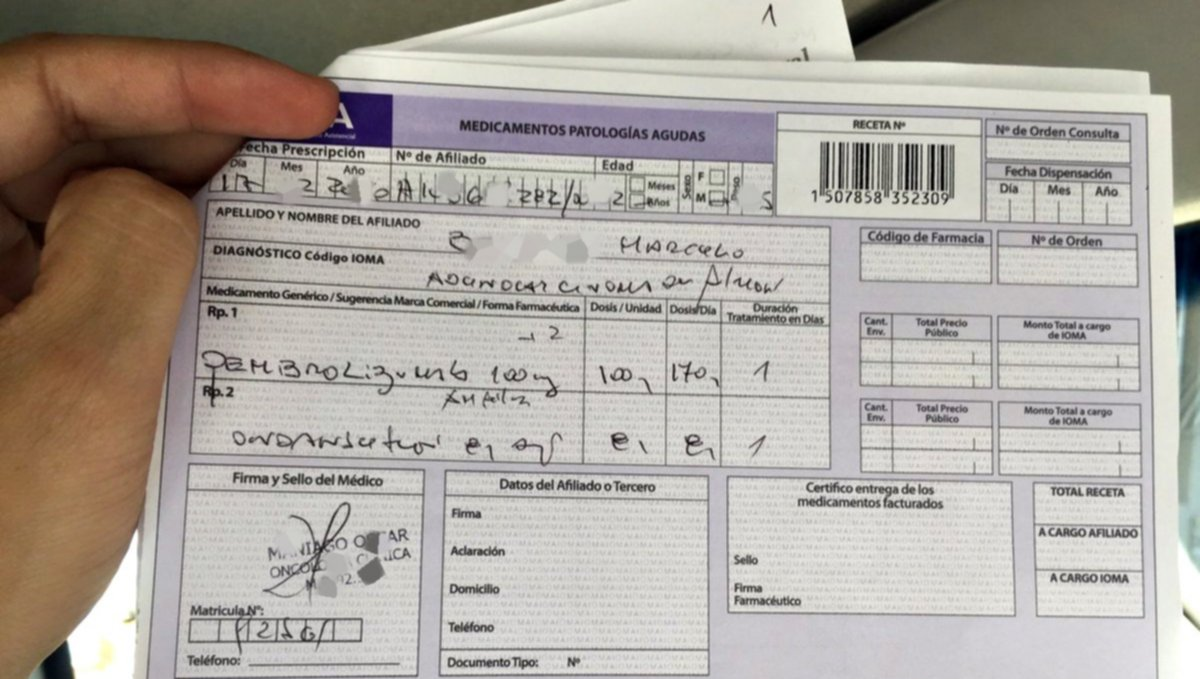 1
A
MEDICAMENTOS PATOLOGÍAS AGUDAS
RECETA Nº
Nº de Orden Consulta
Fecha Prescripción
Nº de Afiliado
Edad
Día Mes Año
Meses
Años
Sexo
F
M
Peso
17 2
1 507858 352309
Fecha Dispensación
Día Mes Año
APELLIDO Y NOMBRE DEL AFILIADO
MARCELO
DIAGNÓSTICO Código IOMA
ADENOCARCINOMA DE PULMON
Código de Farmacia
Nº de Orden
Medicamento Genérico / Sugerencia Marca Comercial / Forma Farmacéutica
Dosis / Unidad
Dosis/Día
Duración
Tratamiento en Días
Rp. 1
2
PEMBROLIZUMAB 100 mg 100 170 1
Rp. 2
ONDANSETRON 8 8 8 1
Cant. Env.
Total Precio Público
Monto Total a cargo de IOMA
Cant. Env.
Total Precio Público
Monto Total a cargo de IOMA
Firma y Sello del Médico
ONCOL
Matricula Nº:
Teléfono:
Datos del Afiliado o Tercero
Firma
Aclaración
Domicilio
Teléfono
Documento Tipo: Nº
Certifico entrega de los
medicamentos facturados
Sello
Firma
Farmacéutico
TOTAL RECETA
A CARGO AFILIADO
A CARGO IOMA